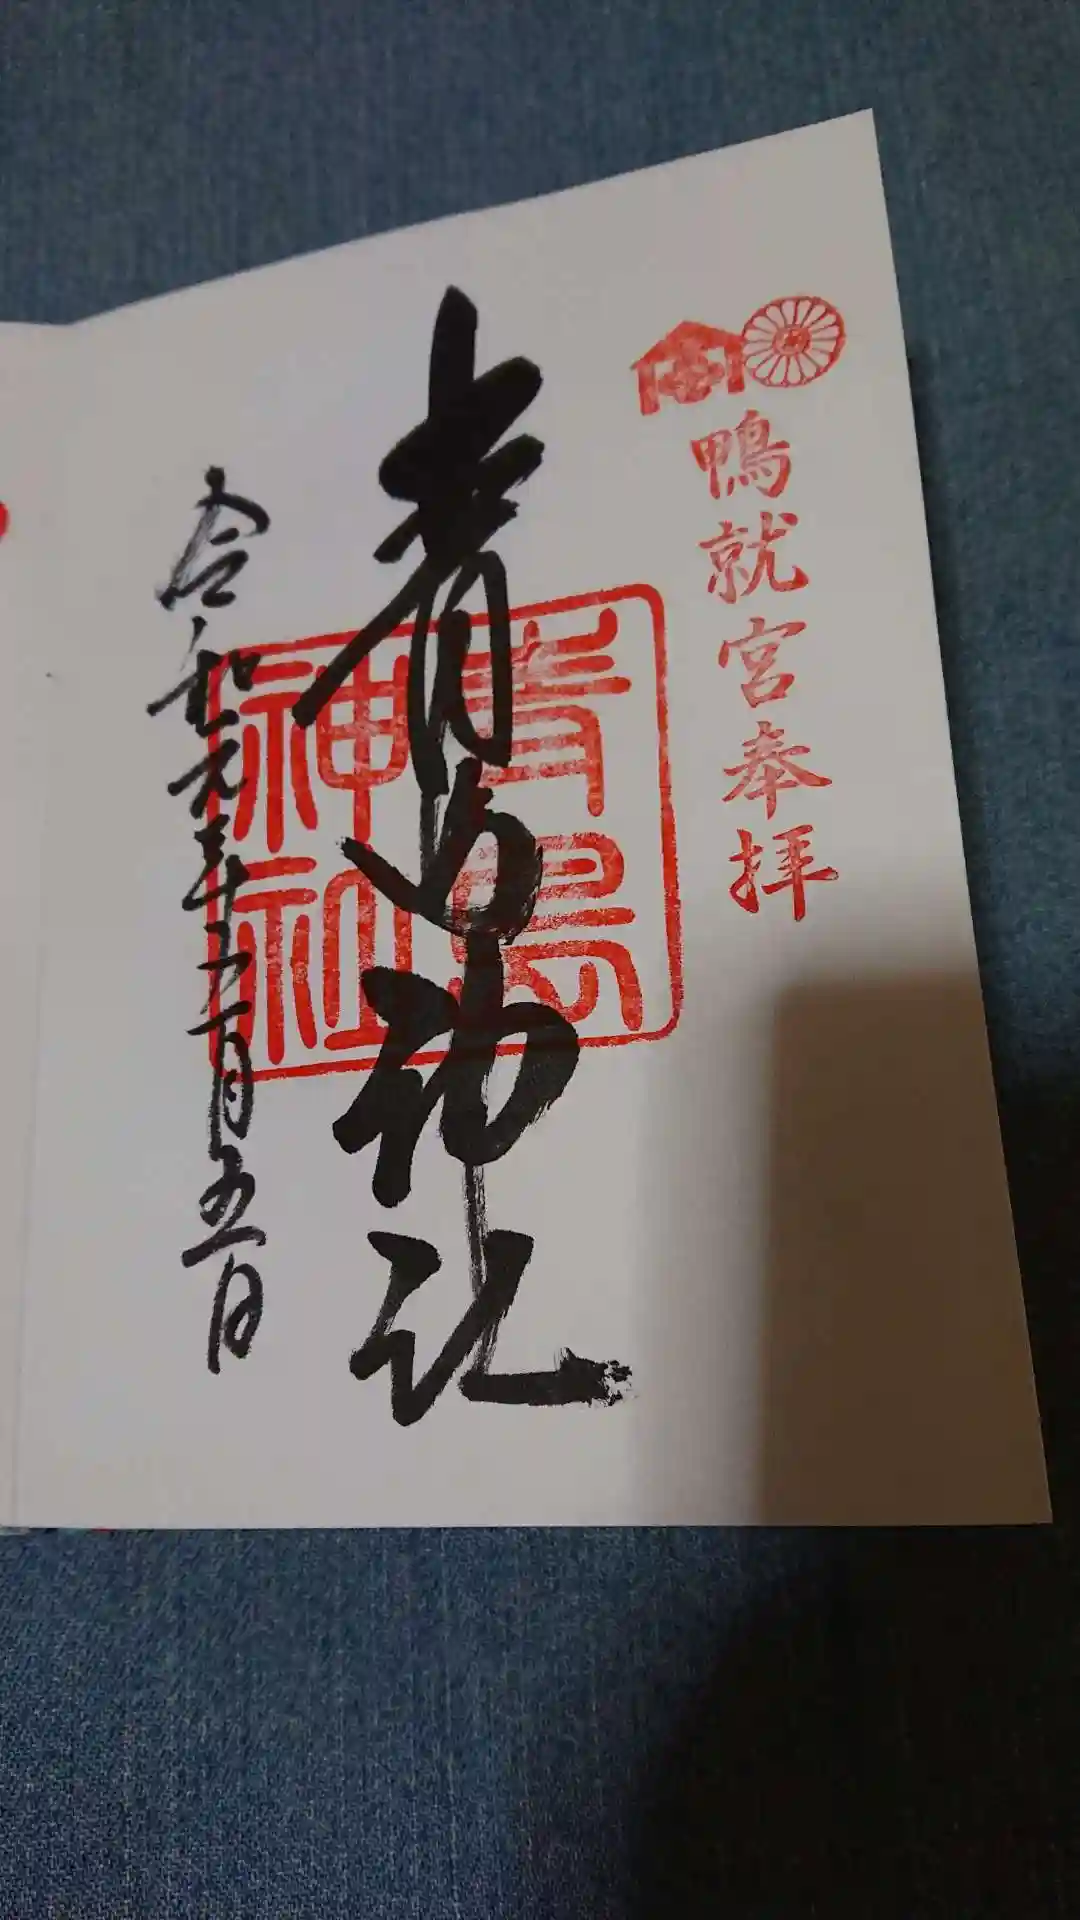 鴨就宮奉拝
青島神社
青島神社
令和元年五月五日